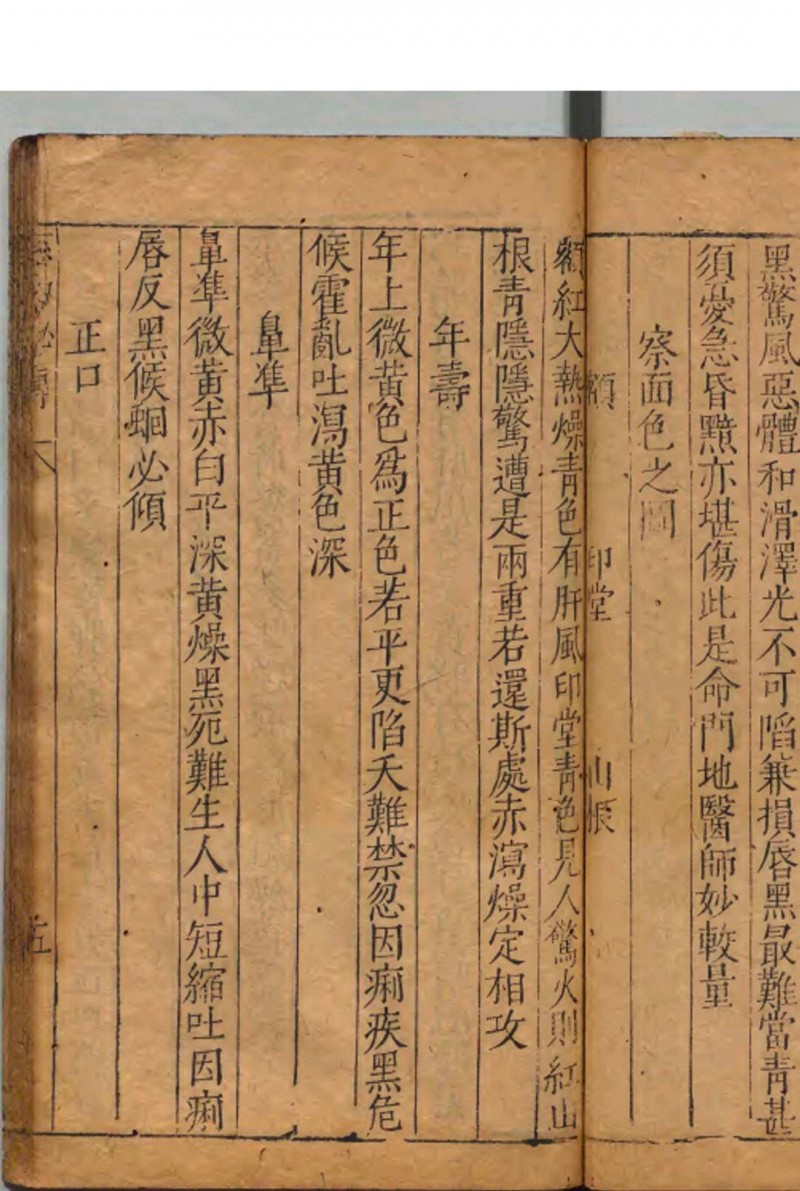 黑驚風惡體和滑澤光不可陷兼損唇黑最難當青甚
須憂急昏黯亦堪傷此是命門地醫師妙較量
察面色之圖
額 印堂 山根
額紅大熱燥青色有肝風印堂青色見人驚火則紅山
根青隱隱驚遭是兩重若還斯處赤瀉燥定相攻
年壽
年上微黃色爲正色若平更陷夭難禁忽因痢疾黑危
候霍亂吐瀉黃色深
鼻準
鼻準微黃赤白平深黃燥黑死難生人中短縮吐因痢
唇反黑候蛔必傾
正口
五